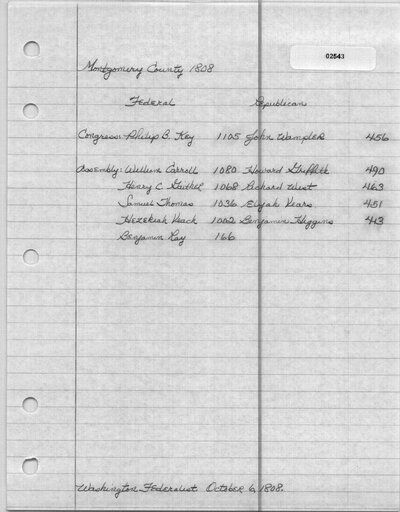 02543
Montgomery County 1808
Federal Republican
Congress: Philip B. Key 1105 John Wampler 456
Assembly: William Carroll 1080 Howard Griffith 490
Henry C. 1068 Richard West 463
Samuel Thomas 1036 Elijah 451
Hezekiah Veach 1002 Benjamin Higgins 413
Benjamin Ray 166
Washington Federalist October 6, 1808.